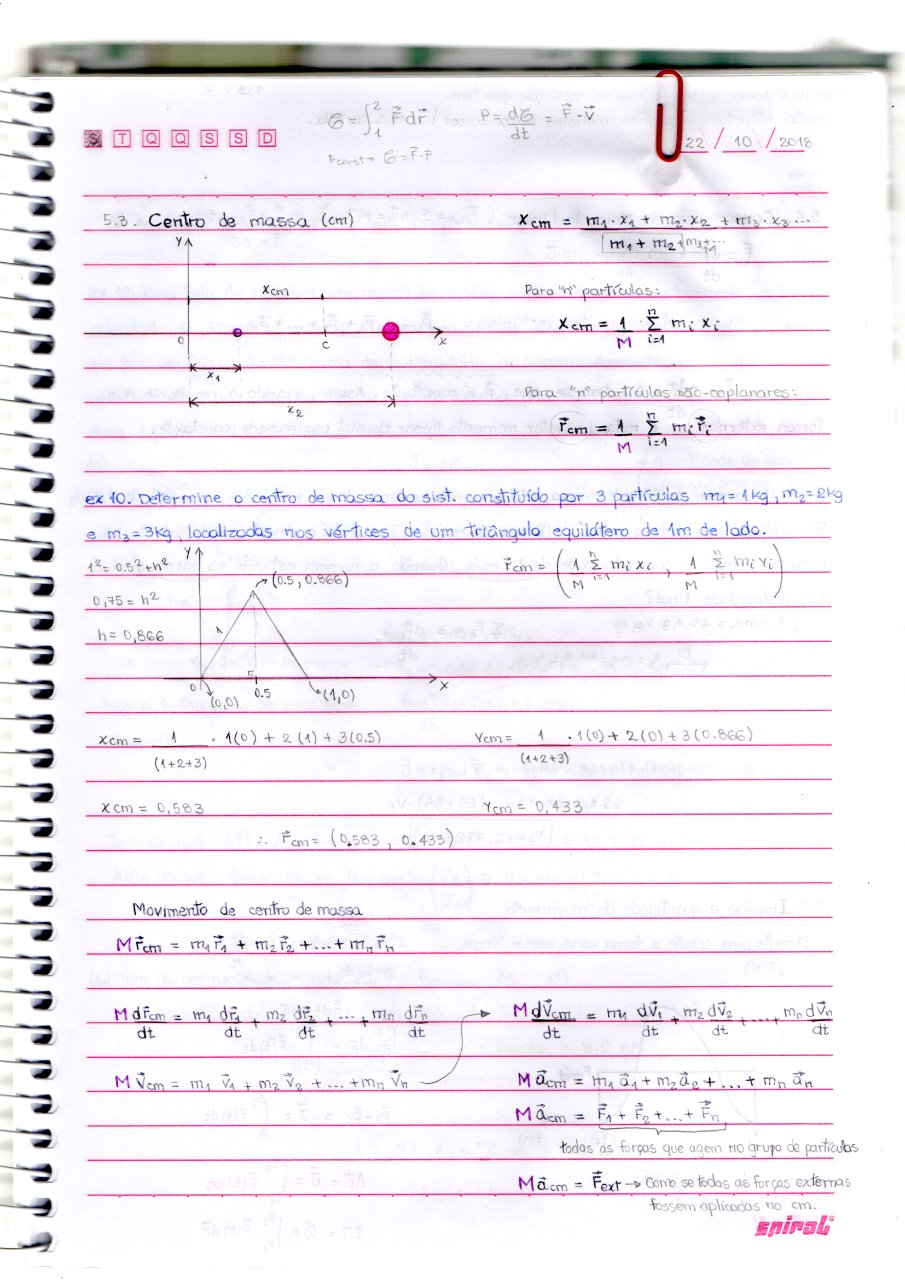 𝒢 = ∫₁² F⃗ dr⃗   P = d𝒢/dt = F⃗ · V⃗
F const → 𝒢 = F⃗ · r⃗
S T Q Q S S D   22 / 10 / 2018
5.3. Centro de massa (cm)   Xcm = (m₁·x₁ + m₂·x₂ + m₃·x₃...)/(m₁ + m₂ + m₃+...)
Y
xcm   Para "n" partículas:
0   C   X   Xcm = 1/M · Σ(i=1→n) mᵢ xᵢ
x₁
x₂   Para "n" partículas não-coplanares:
r⃗cm = 1/M Σ(i=1→n) mᵢ r⃗ᵢ
ex 10. Determine o centro de massa do sist. constituído por 3 partículas m₁= 1kg, m₂= 2kg
e m₃= 3kg, localizadas nos vértices de um triângulo equilátero de 1m de lado.
1² = 0.5² + h²   Y   (0.5, 0.866)   r⃗cm = (1/M Σ(i=1→n) mᵢ xᵢ , 1/M Σ(i=1→n) mᵢ Yᵢ)
0,75 = h²
h = 0,866
0   (0,0)   0.5   (1,0)   X
xcm = 1/(1+2+3) · 1(0) + 2(1) + 3(0.5)   Ycm = 1/(1+2+3) · 1(0) + 2(0) + 3(0.866)
xcm = 0,583   Ycm = 0,433
∴ r⃗cm = (0.583 , 0.433)
Movimento de centro de massa
M r⃗cm = m₁ r⃗₁ + m₂ r⃗₂ + ... + mn r⃗n
M dr⃗cm/dt = m₁ dr⃗₁/dt + m₂ dr⃗₂/dt + ... + mn dr⃗n/dt   → M dV⃗cm/dt = m₁ dV⃗₁/dt + m₂ dV⃗₂/dt + ... + mn dV⃗n/dt
M V⃗cm = m₁ V⃗₁ + m₂ V⃗₂ + ... + mn V⃗n   M a⃗cm = m₁ a⃗₁ + m₂ a⃗₂ + ... + mn a⃗n
M a⃗cm = F⃗₁ + F⃗₂ + ... + F⃗n
todas as forças que agem no grupo de partículas
M a⃗cm = F⃗ext → Como se todas as forças externas
fossem aplicadas no cm.
spiral